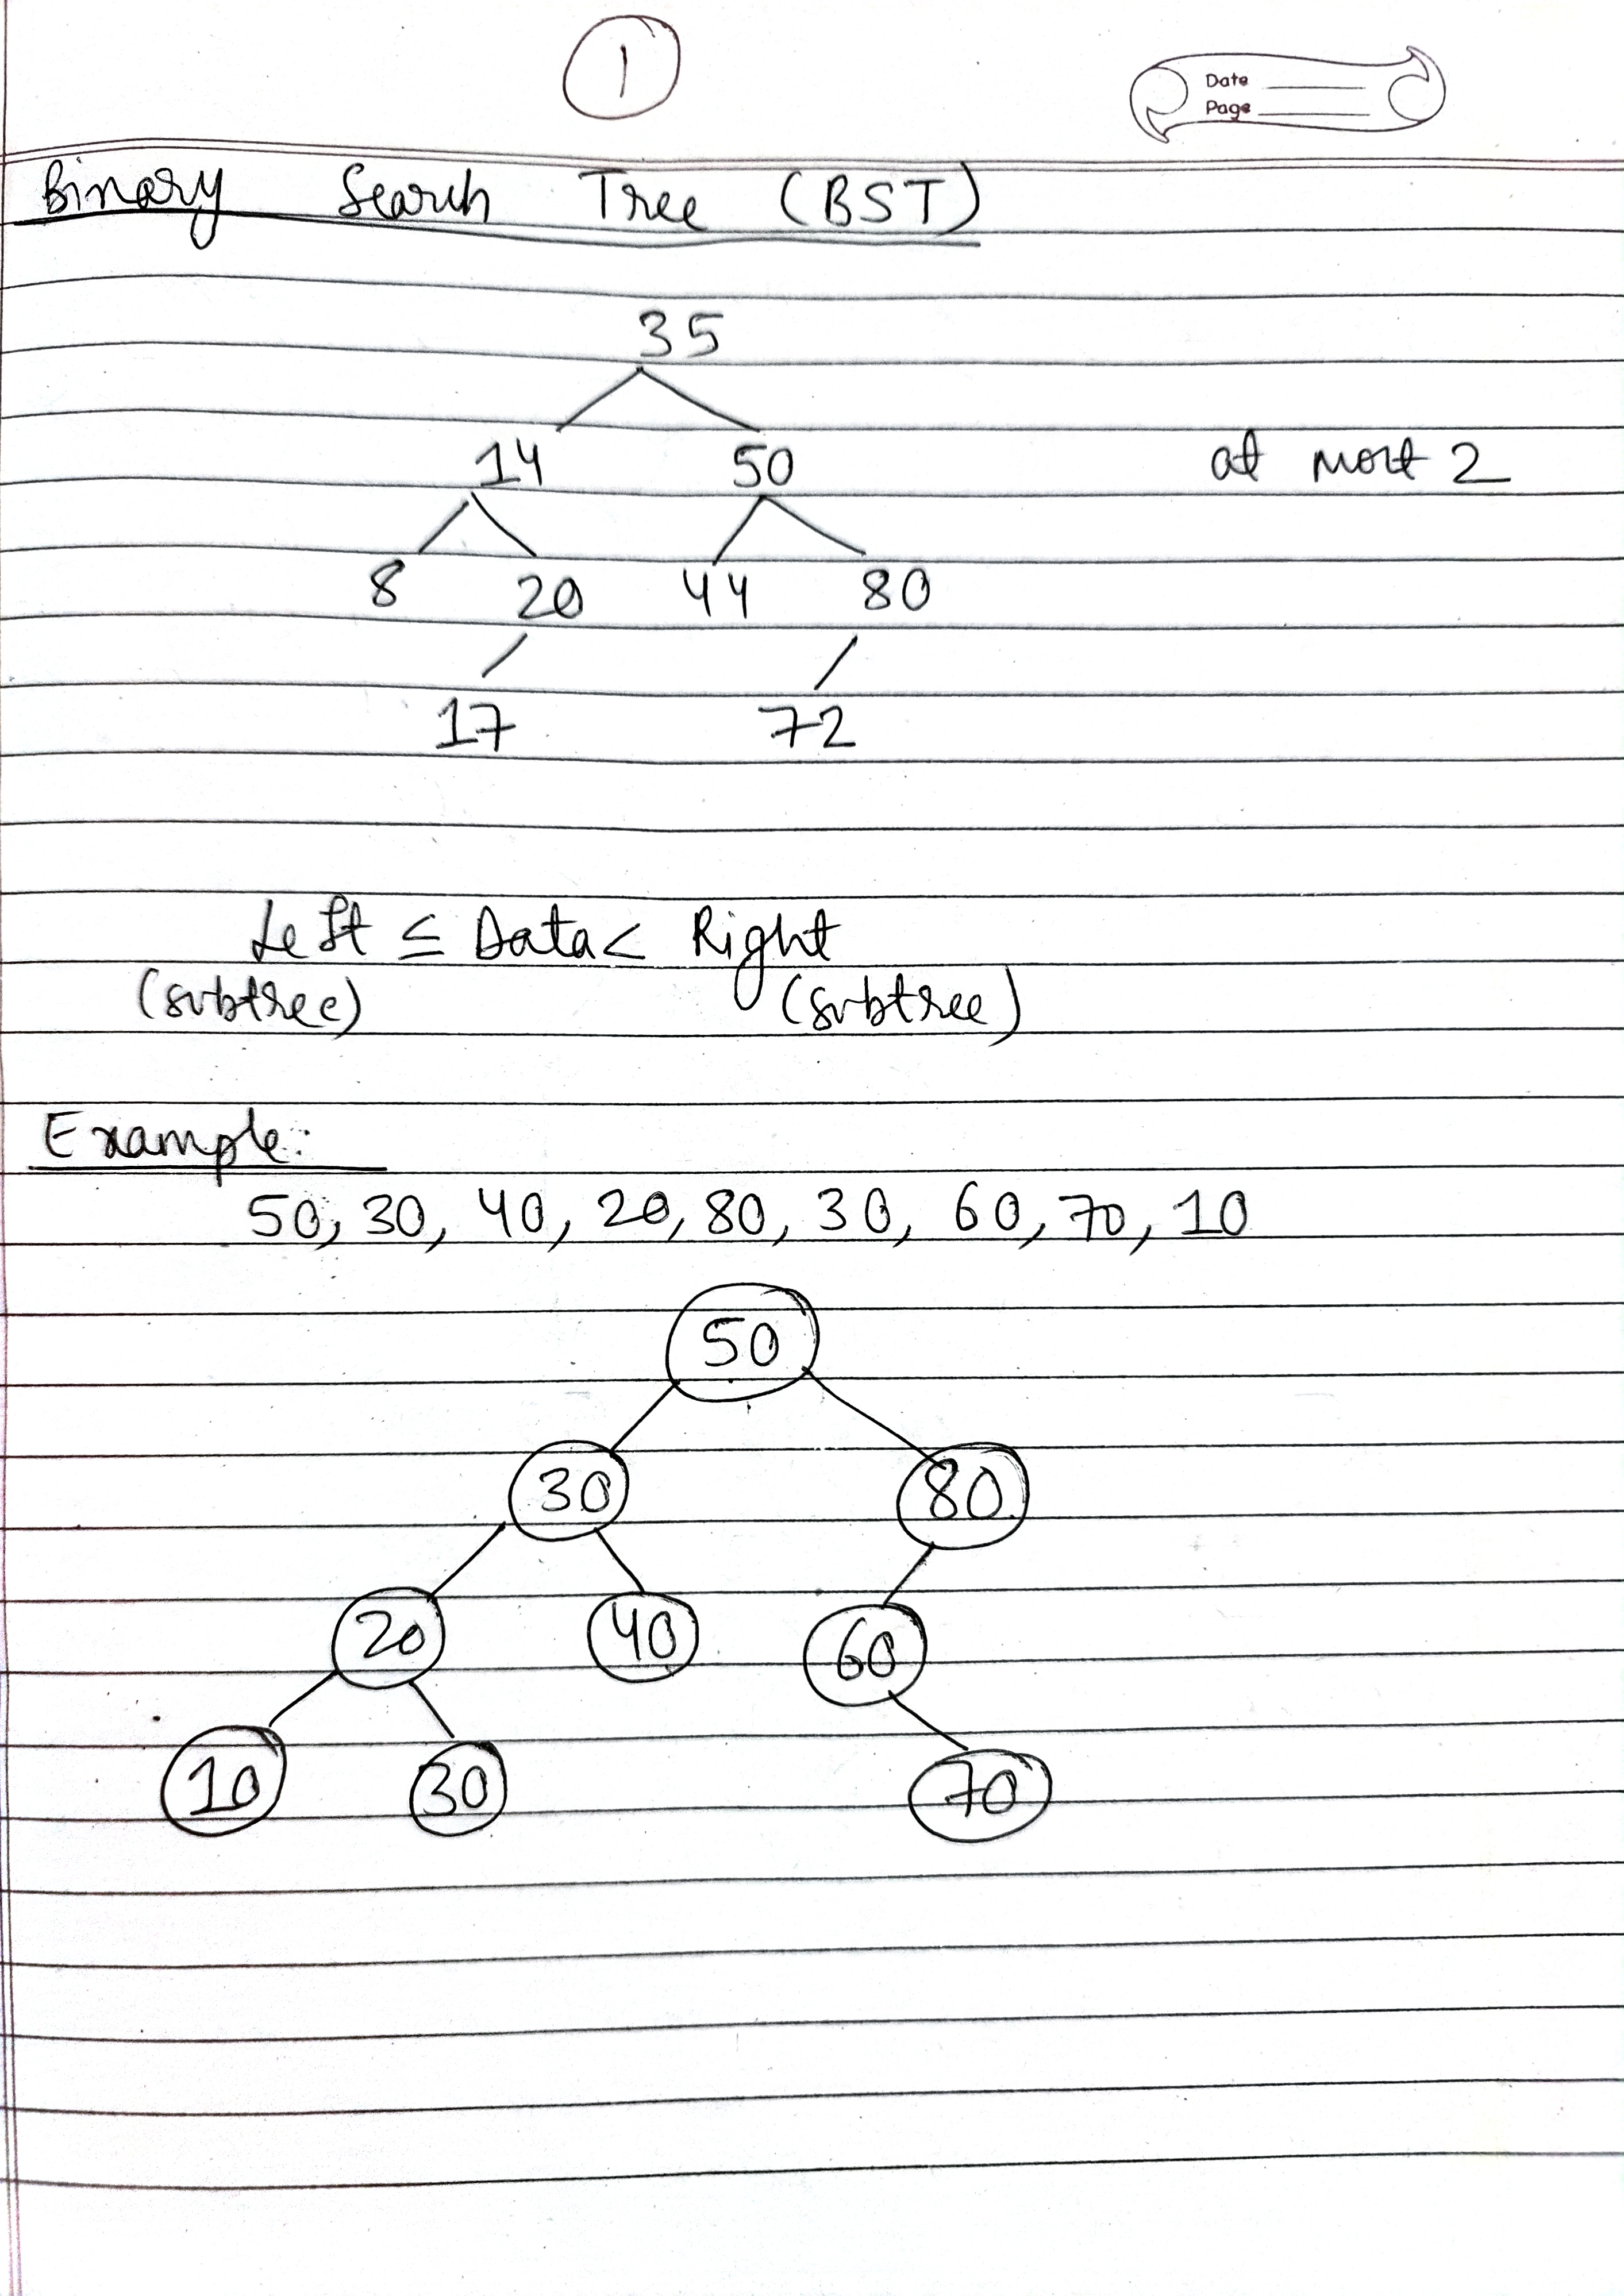 1
Date
Page
Binary Search Tree (BST)
35
14 50 at most 2
8 20 44 80
17 72
Left ≤ Data < Right
(subtree) (subtree)
Example:
50, 30, 40, 20, 80, 30, 60, 70, 10
50
30 80
20 40 60
10 30 70